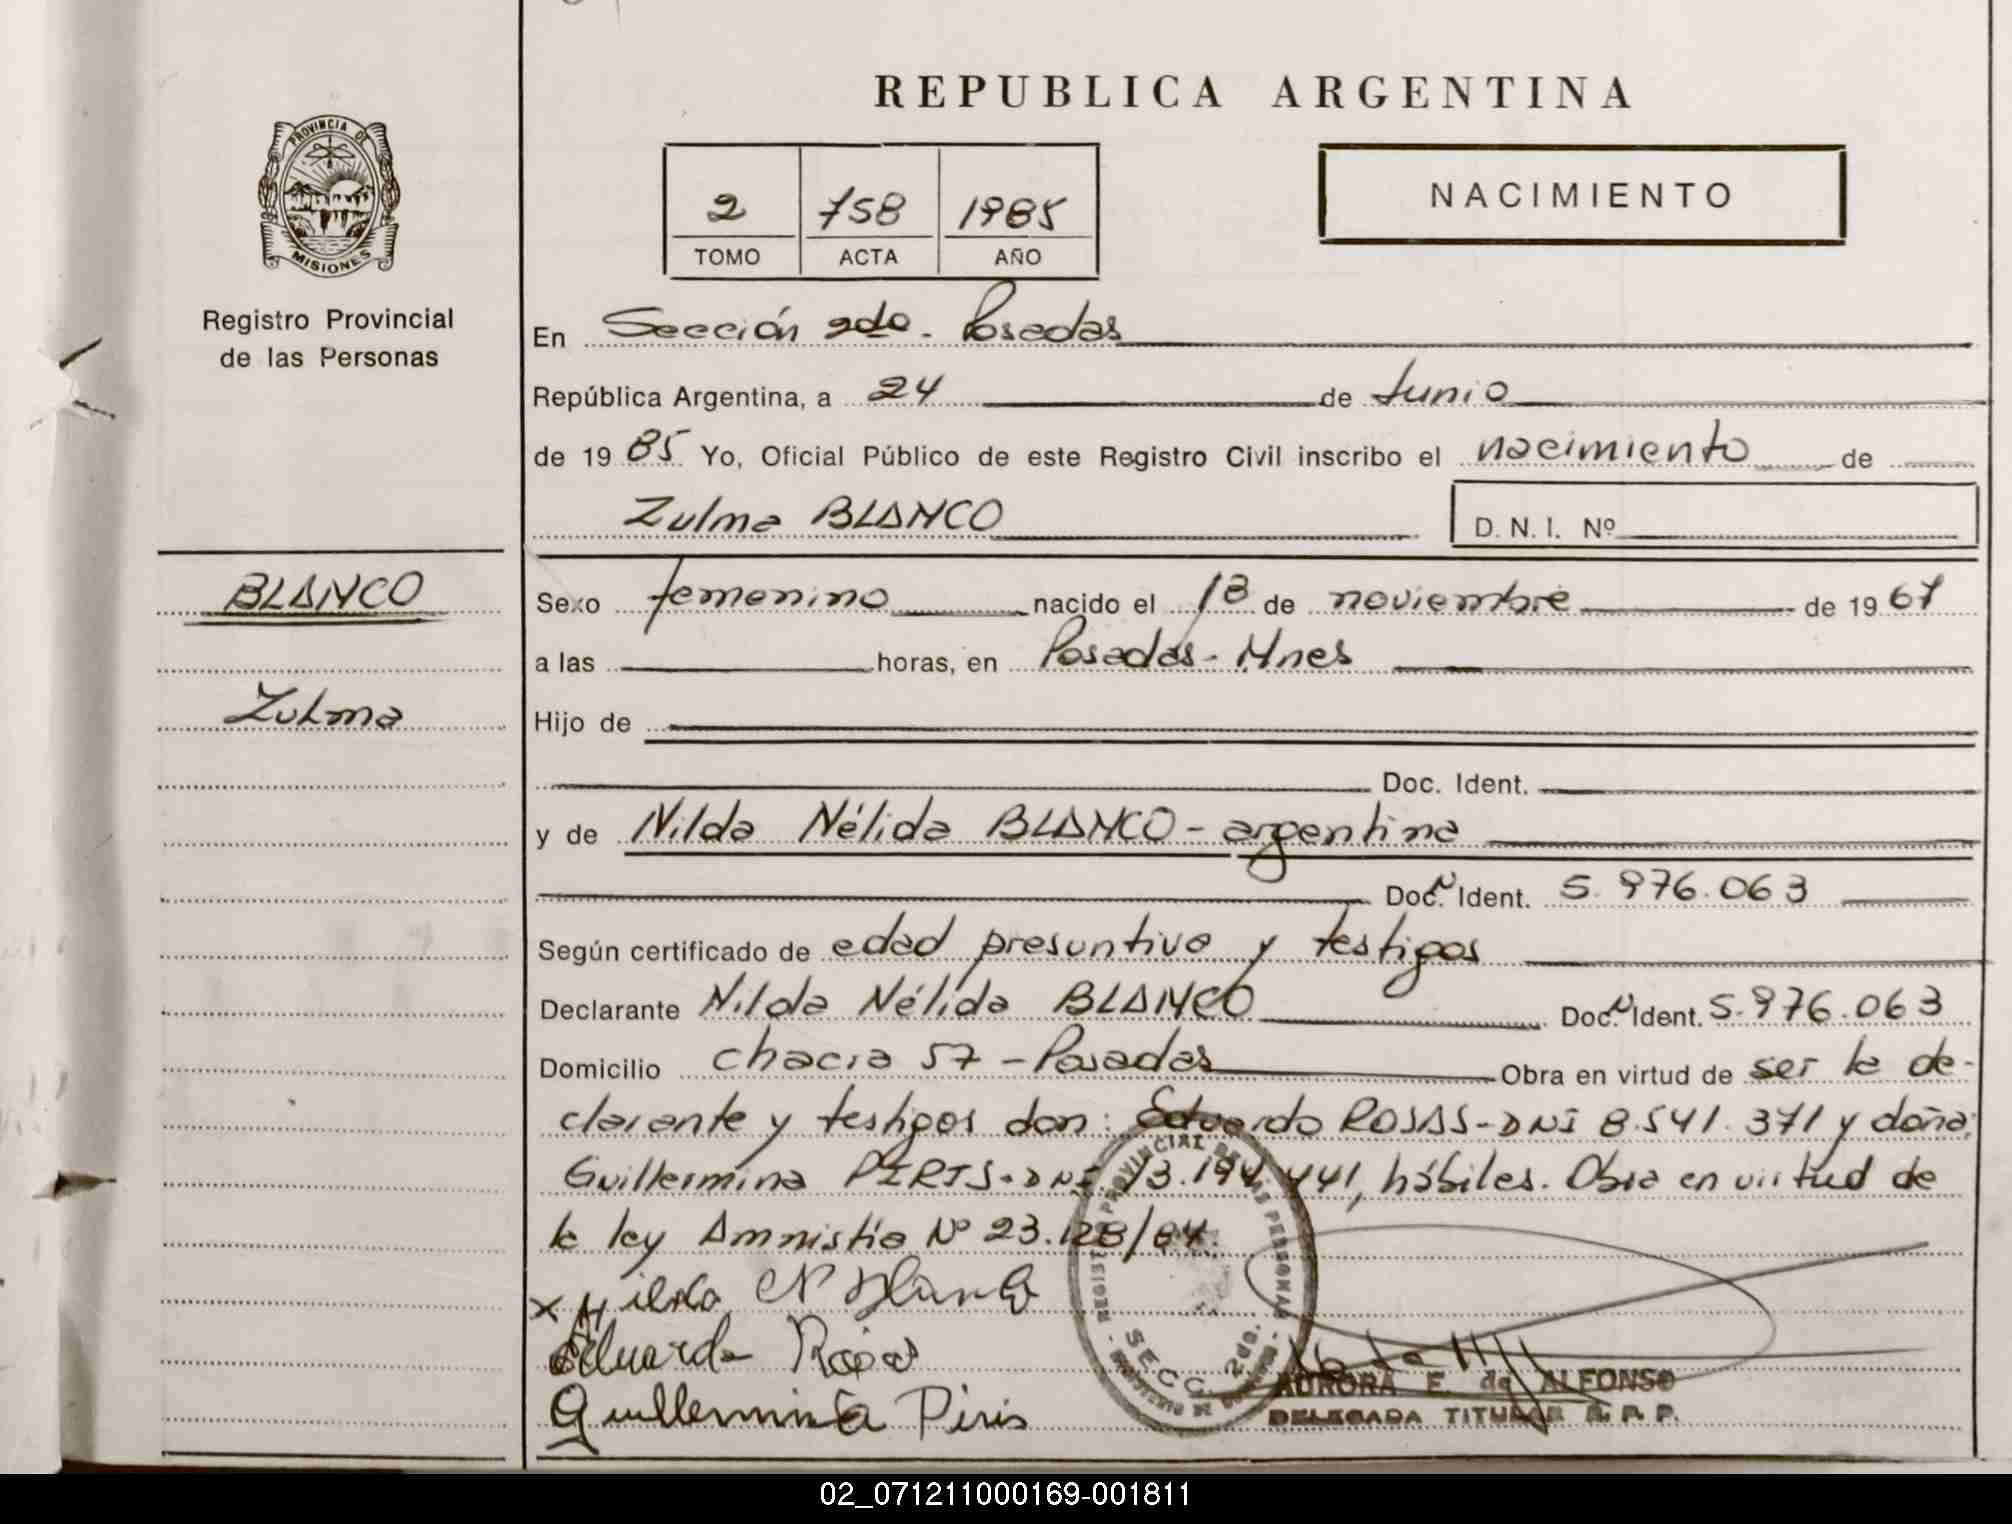 REPUBLICA ARGENTINA
PROVINCIA DE
MISIONES
Registro Provincial
de las Personas
2 758 1985
TOMO ACTA AÑO
NACIMIENTO
En Sección 2da. Posadas
República Argentina, a 24 de Junio
de 19 85 Yo, Oficial Público de este Registro Civil inscribo el nacimiento de
Zulma BLANCO D. N. I. Nº
BLANCO
Zulma
Sexo femenino nacido el 18 de noviembre de 19 67
a las horas, en Posadas - Mnes
Hijo de
Doc. Ident.
y de Nilda Nélida BLANCO - argentina
Doc. N Ident. 5.976.063
Según certificado de edad presuntiva y testigos
Declarante Nilda Nélida BLANCO Doc. N Ident. 5.976.063
Domicilio chacra 57 - Posadas Obra en virtud de ser la de-
clarante y testigos don: Eduardo ROSAS - DNI 8.541.371 y doña:
Guillermina PIRIS - DNI 13.194.441, hábiles. Obra en virtud de
la ley Amnistía Nº 23.128/84.
x Nilda N Blanco
Eduardo Rosas
Guillermina Piris
REGISTRO PROVINCIAL DE LAS PERSONAS
SECC. 2da.
AURORA E. de ALFONSO
DELEGADA TITULAR R. P. P.
02_071211000169-001811